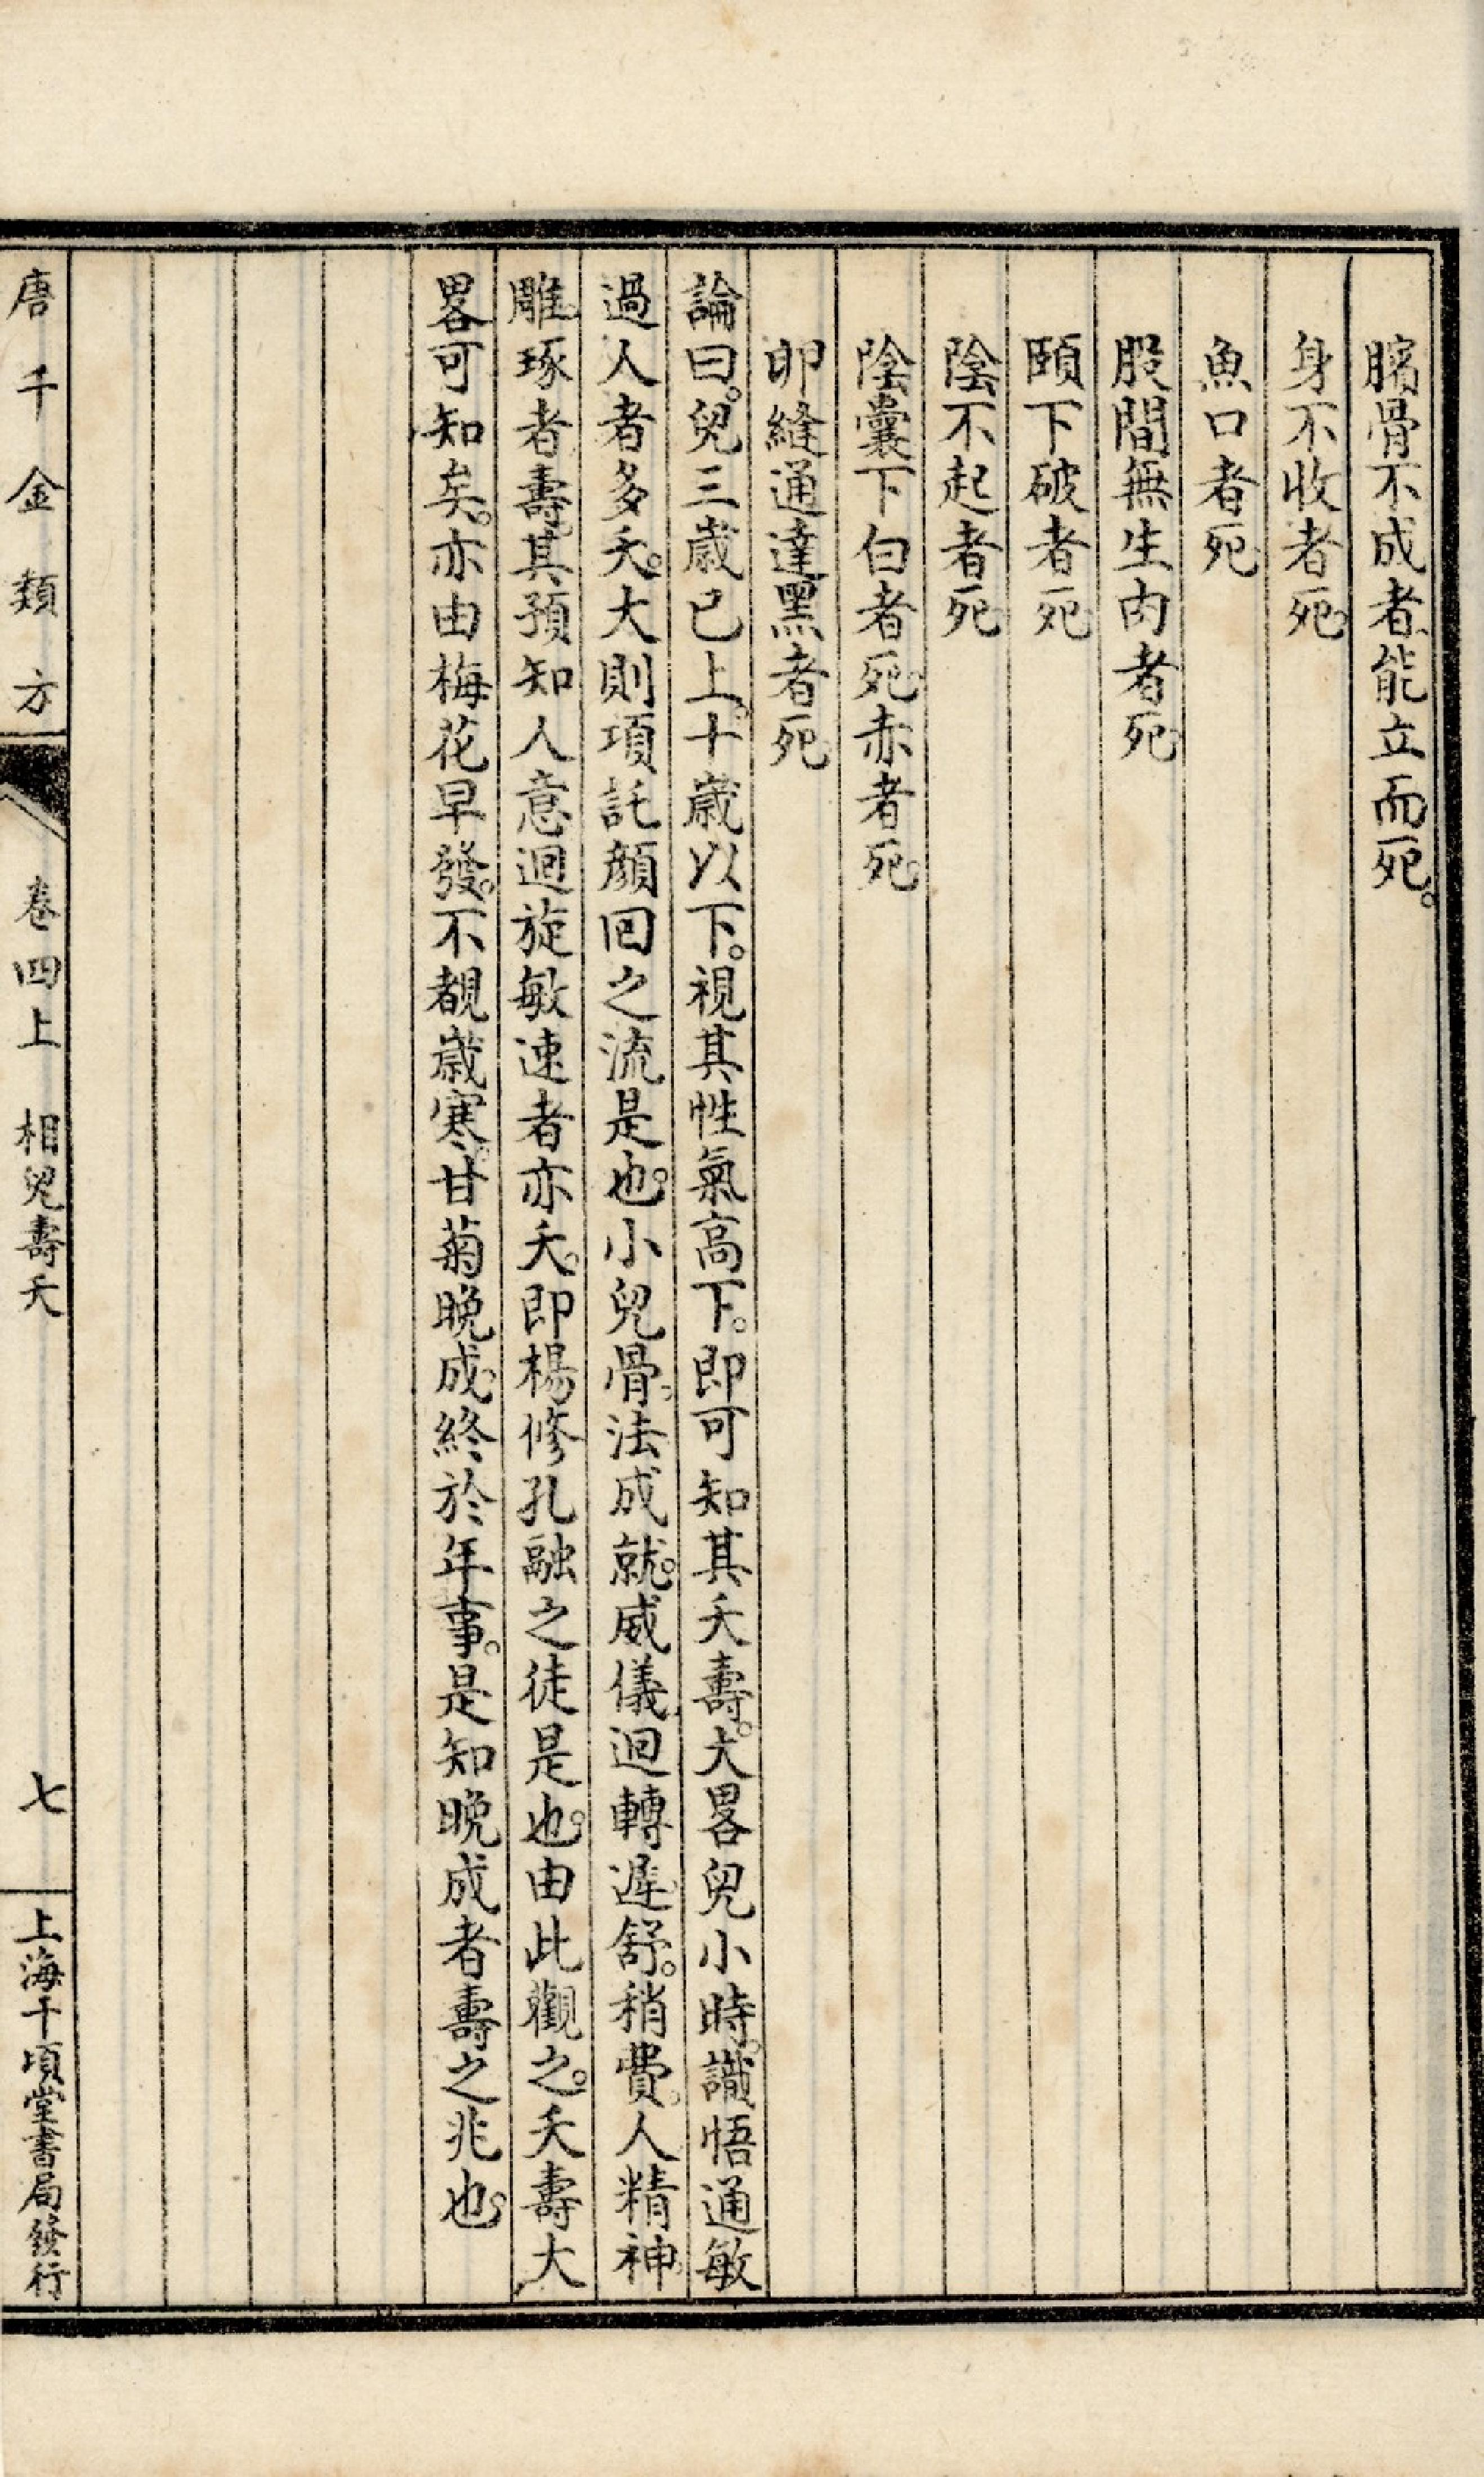 臏骨不成者能立而死。
身不收者死
魚口者死
股間無生肉者死
頤下破者死
陰不起者死
陰囊下白者死赤者死。
卵縫通達黑者死
論曰。兒三歲已上。十歲以下。視其性氣高下。即可知其夭壽。大畧兒小時。識悟通敏
過人者多夭。大則項託顔回之流是也。小兒骨。法成就。威儀迴轉遲舒。稍費人精神
雕琢者壽。其預知人意迴旋敏速者亦夭。即楊修孔融之徒是也。由此觀之。夭壽大
畧可知矣。亦由梅花早發。不覩歲寒。甘菊晚成。終於年事。是知晚成者壽之兆也。
唐千金類方 卷四上 相兒壽夭 七 上海千頃堂書局發行